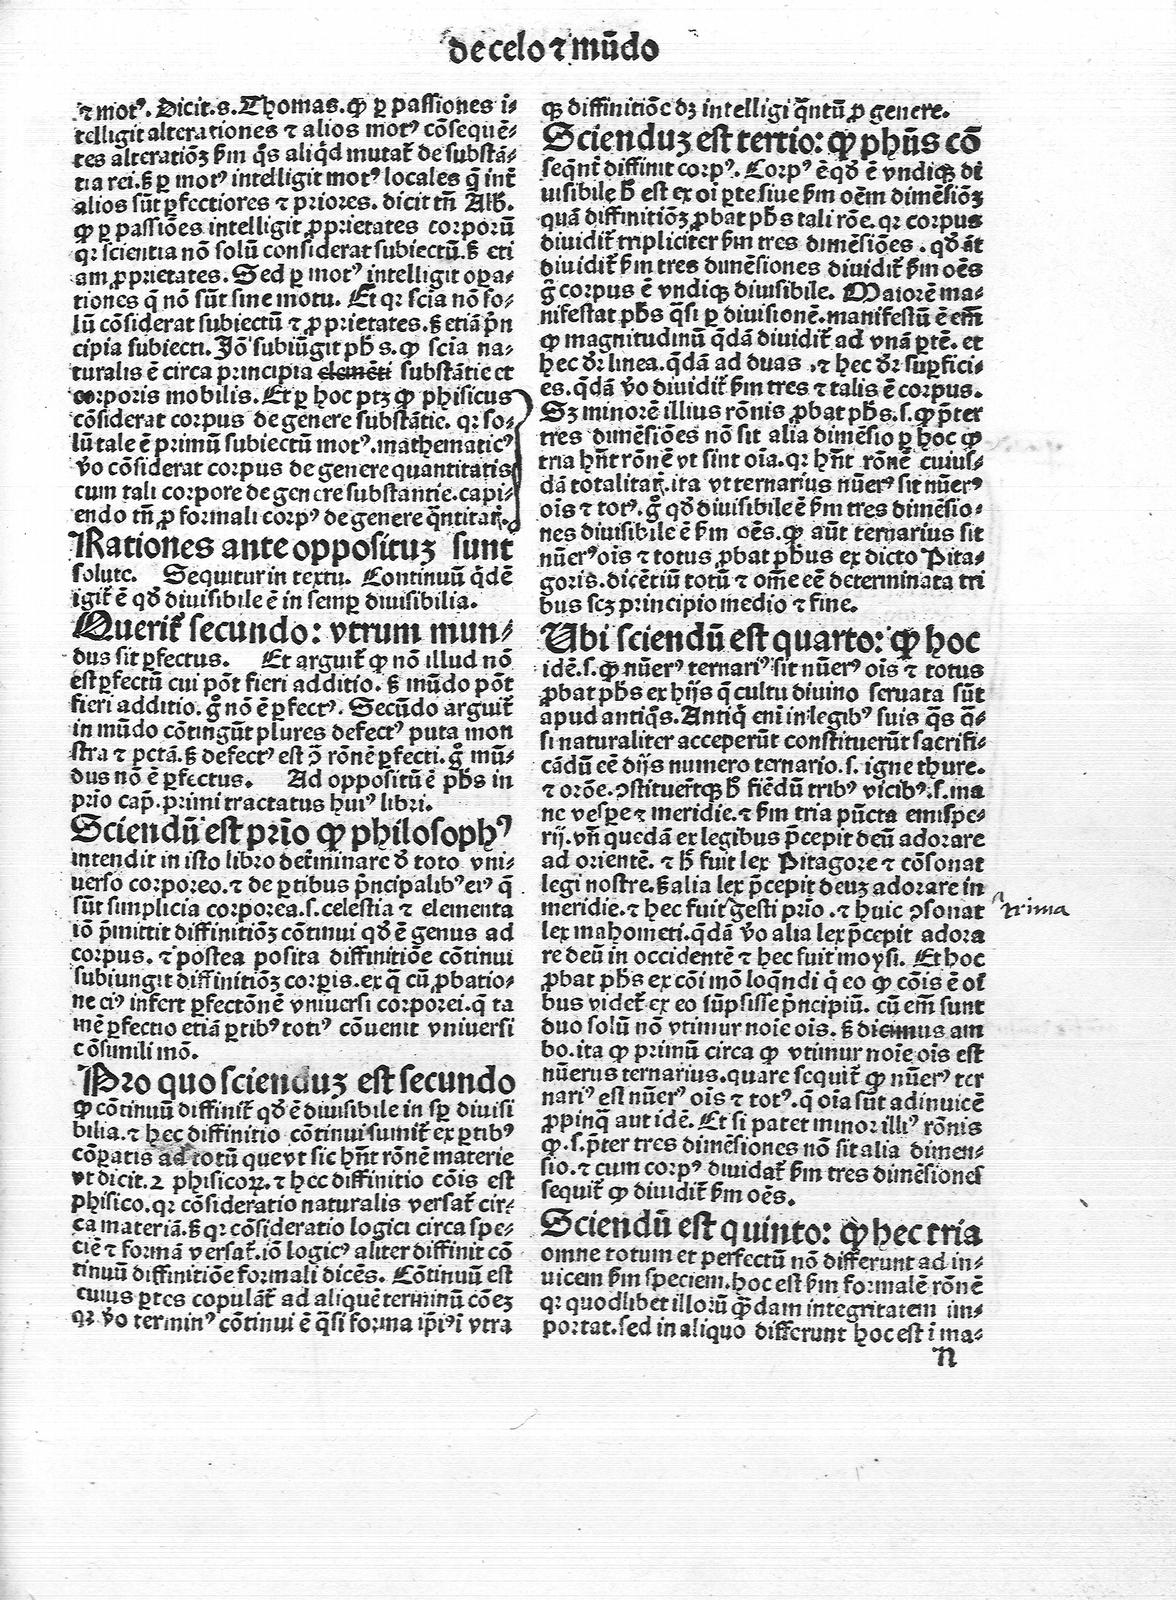 de celo ⁊ mūdo
⁊ motꝰ. Dicit. s. Thomas. ꝙ ꝑ passiones i⸗
telligit alterationes ⁊ alios motꝰ cōsequē⸗
tes alteratiōꝫ ẜm q̄s aliq̇d mutat̄ de substā⸗
tia rei. ẜ ꝑ motꝰ intelligit motꝰ locales q̄ int̄
alios sūt ꝑfectiores ⁊ priores. dicit tn̄ Alb.
ꝙ ꝑ passiōes intelligit ꝓprietates corporū
qꝛ scientia nō solū considerat subiectū. ẜ eti
am ꝓprietates. Sed ꝑ motꝰ intelligit oꝑa⸗
tiones q̄ nō sūt sine motu. Et qꝛ scīa nō so⸗
lū cōsiderat subiectū ⁊ ꝓprietates. ẜ etiā p̄n
cipia subiecti. Iō subiūgit ph̄s. ꝙ scīa na⸗
turalis ē circa principia elemēti substātie et
corporis mobilis. Et ꝑ hoc ptꝫ ꝙ phisicus
cōsiderat corpus de genere substātie. qꝛ so⸗
lū tale ē primū subiectū motꝰ. mathematicꝰ
v̄o cōsiderat corpus de genere quantitatis
cum tali corpore de genere substantie. capi⸗
endo tn̄ ꝓ formali corpꝰ de genere q̄ntitat̄.
Rationes ante opposituꝫ sunt
solute. Sequitur in textu. Continuū q̇dē
igit̄ ē qđ diuisibile ē in semꝑ diuisibilia.
Querit̄ secundo: vtrum mun⸗
dus sit ꝑfectus. Et arguit̄ ꝙ nō illud nō
est ꝑfectū cui pōt fieri additio. ẜ mūdo pōt
fieri additio. g̊ nō ē ꝑfectꝰ. Secūdo arguit̄
in mūdo cōtingūt plures defectꝰ puta mon
stra ⁊ pctā. ẜ defectꝰ est ꝯ rōnē ꝑfecti. g̊ mū⸗
dus nō ē ꝑfectus. Ad oppositū ē ph̄s in
prio cap̄. primi tractatus huiꝰ libri.
Sciendū est prīo ꝙ philosophꝰ
intendit in isto libro det̄minare đ toto vni⸗
uerso corporeo. ⁊ de ꝑtibus p̄ncipalibꝰ eiꝰ q̄
sūt simplicia corporea. s. celestia ⁊ elementa
iō p̄mittit diffinitiōꝫ cōtinui qđ ē genus ad
corpus. ⁊ postea posita diffinitiōe cōtinui
subiungit diffinitiōꝫ corꝑis. ex q̄ cū ꝓbatio⸗
ne eiꝰ infert ꝑfectōnē vniuersi corporei. q̄ ta
mē ꝑfectio etiā ꝑtibꝰ totiꝰ cōuenit vniuersi
cōsimili mō.
Pro quo scienduꝫ est secundo
ꝙ cōtinuū diffinit̄ qđ ē diuisibile in sꝑ diuisi
bilia. ⁊ hec diffinitio cōtinui sumit̄ ex ꝑtibꝰ
cōꝑatis ad totū que vt sic hn̄t rōnē materie
vt dicit. 2 phisicoꝝ. ⁊ hec diffinitio cōis est
phisico. qꝛ cōsideratio naturalis versat̄ cir⸗
ca materiā. ẜ qꝛ cōsideratio logici circa spe⸗
ciē ⁊ formā versat̄. iō logicꝰ aliter diffinit cō
tinuū diffinitiōe formali dicēs. Cōtinuū est
cuius ꝑtes copulāt̄ ad aliquē terminū cōeꝫ
qꝛ v̄o terminꝰ cōtinui ē q̄si forma ip̄iꝰ i vtra
qꝫ diffinitiōe dꝫ intelligi q̄ntū ꝓ genere.
Scienduꝫ est tertio: ꝙ ph̄us cō
seqn̄t diffinit corpꝰ. Corpꝰ ē qđ ē vndiqꝫ di
uisibile h̄ est ex oī ꝑte siue ẜm oēm dimēsiōꝫ
quā diffinitiōꝫ ꝓbat ph̄s tali rōe. qꝛ corpus
diuidit̄ tripliciter ẜm tres dimēsiōes. qđ āt
diuidit̄ ẜm tres dimēsiones diuidit̄ ẜm oēs
g̊ corpus ē vndiqꝫ diuisibile. Maiorē ma⸗
nifestat ph̄s q̄si ꝑ diuisionē. manifestū ē em̄
ꝙ magnitudinū q̄dā diuidit̄ ad vnā ꝑtē. et
hec dr̄ linea. q̄dā ad duas. ⁊ hec dr̄ suꝑfici⸗
es. q̄dā v̄o diuidit̄ ẜm tres ⁊ talis ē corpus.
Sꝫ minorē illius rōnis ꝓbat ph̄s. s. ꝙ p̄ter
tres dimēsiōes nō sit alia dimēsio ꝑ hoc ꝙ
tria hn̄t rōnē vt sint oīa. qꝛ hn̄t rōnē cuius⸗
dā totalitat̄. ita vt ternarius nūerꝰ sit nūerꝰ
oīs ⁊ totꝰ. g̊ qđ diuisibile ē ẜm tres dimēsio⸗
nes diuisibile ē ẜm oēs. ꝙ aūt ternarius sit
nūerꝰ oīs ⁊ totus ꝓbat ph̄us ex dicto Pita⸗
goris. dicētiū totū ⁊ om̄e eē determinata tri
bus scꝫ principio medio ⁊ fine.
Ubi sciendū est quarto: ꝙ hoc
idē. s. ꝙ nūerꝰ ternariꝰ sit nūerꝰ oīs ⁊ totus
ꝓbat ph̄s ex hijs q̄ cultu diuino seruata sūt
apud antiq̄s. Antiq̇ eni in legibꝰ suis q̄s q̄⸗
si naturaliter acceperūt constituerūt sacrifi⸗
cādū eē dijs numero ternario. s. igne thure.
⁊ orōe. ꝯstituer̄tqꝫ h̄ fiēdū tribꝰ vicibꝰ. s. ma
ne vesꝑe ⁊ meridie. ⁊ ẜm tria pūcta emispe⸗
rij. vn̄ quedā ex legibus p̄cepit deū adorare
ad orientē. ⁊ h̄ fuit lex Pitagore ⁊ cōsonat
legi nostre. ẜ alia lex p̄cepit deuꝫ adorare in
meridie. ⁊ hec fuit gesti prio. ⁊ huic ꝯsonat
prima
lex mahometi. q̄dā v̄o alia lex p̄cepit adora
re deū in occidentē ⁊ hec fuit moysi. Et hoc
ꝓbat ph̄s ex cōi mō loq̄ndi q̇ eo ꝙ cōis ē oī
bus videt̄ ex eo sūpsisse p̄ncipiū. cū em̄ sunt
duo solū nō vtimur noīe oīs. ẜ dicimus am
bo. ita ꝙ primū circa ꝙ vtimur noīe oīs est
nūerus ternarius. quare sequit̄ ꝙ nūerꝰ ter
nariꝰ est nūerꝰ oīs ⁊ totꝰ. q̄ oīa sūt adinuicē
ꝓpinq̄ aut idē. Et si patet minor illiꝰ rōnis
ꝙ. s. p̄ter tres dimēsiones nō sit alia dimen⸗
sio. ⁊ cum corpꝰ diuidat̄ ẜm tres dimēsiones
sequit̄ ꝙ diuidit̄ ẜm oēs.
Sciendū est quinto: ꝙ hec tria
omne totum et perfectū nō differunt ad in⸗
uicem ẜm speciem. hoc est ẜm formalē rōnē
qꝛ quodlibet illorū q̄dam integritatem im⸗
portat. sed in aliquo differunt hoc est i ma⸗
n